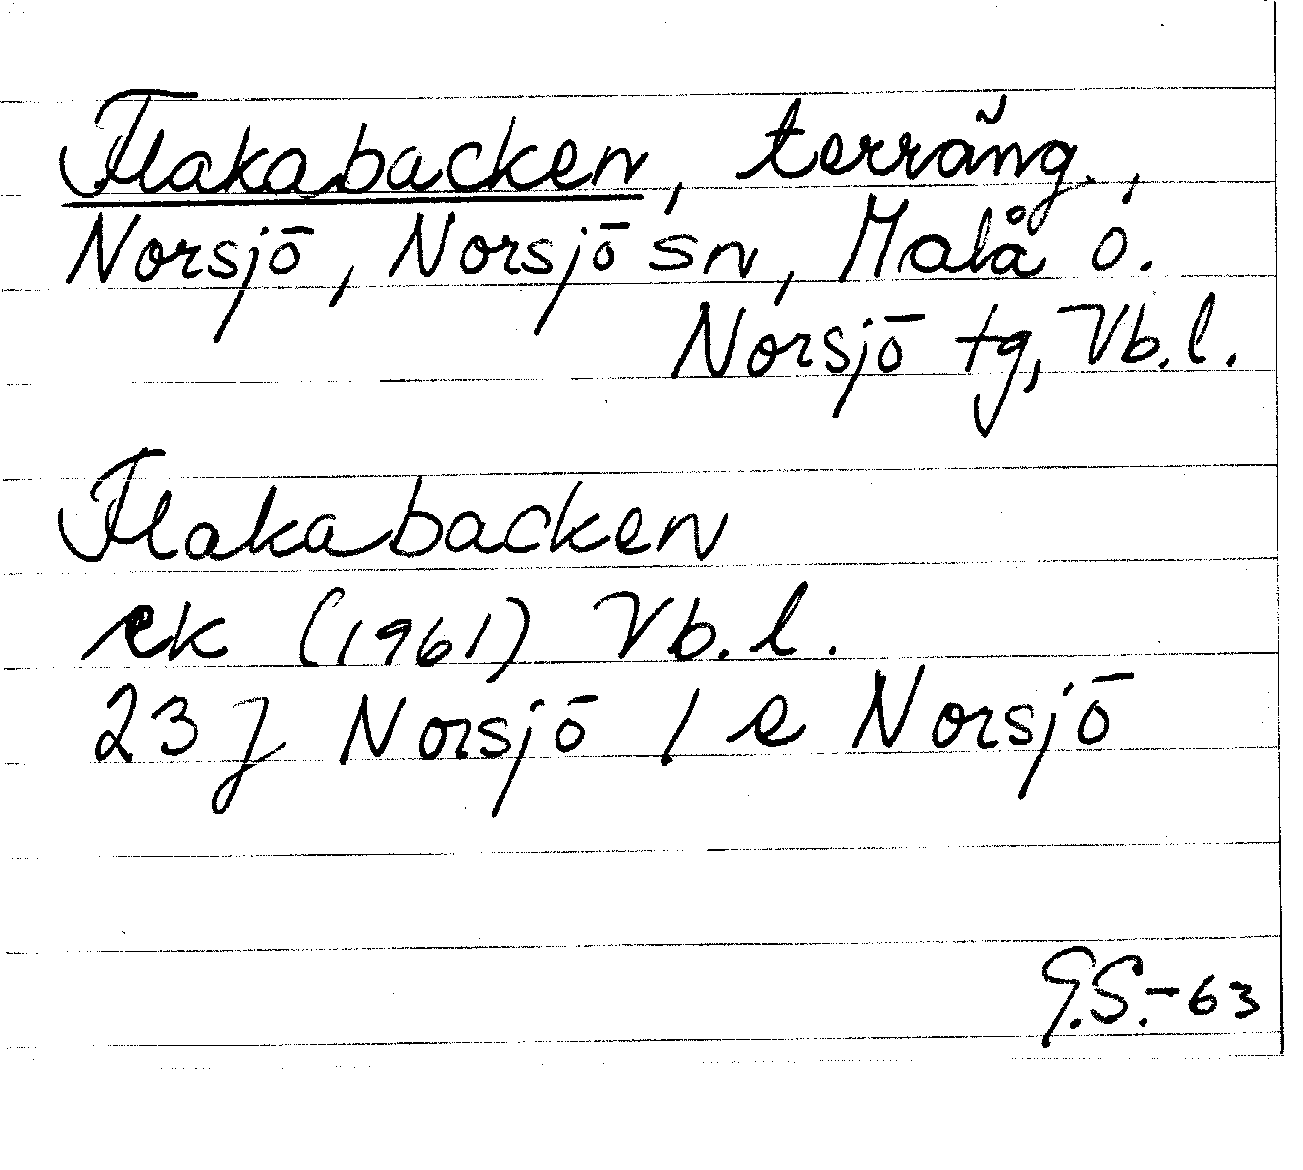 Flakabacken, terräng.,
Norsjö, Norsjö sn, Malå o.
Norsjö tg, Vb.l.
Flakabacken
ek (1961) Vb.l.
23 J Norsjö / e Norsjö
G.S.-63